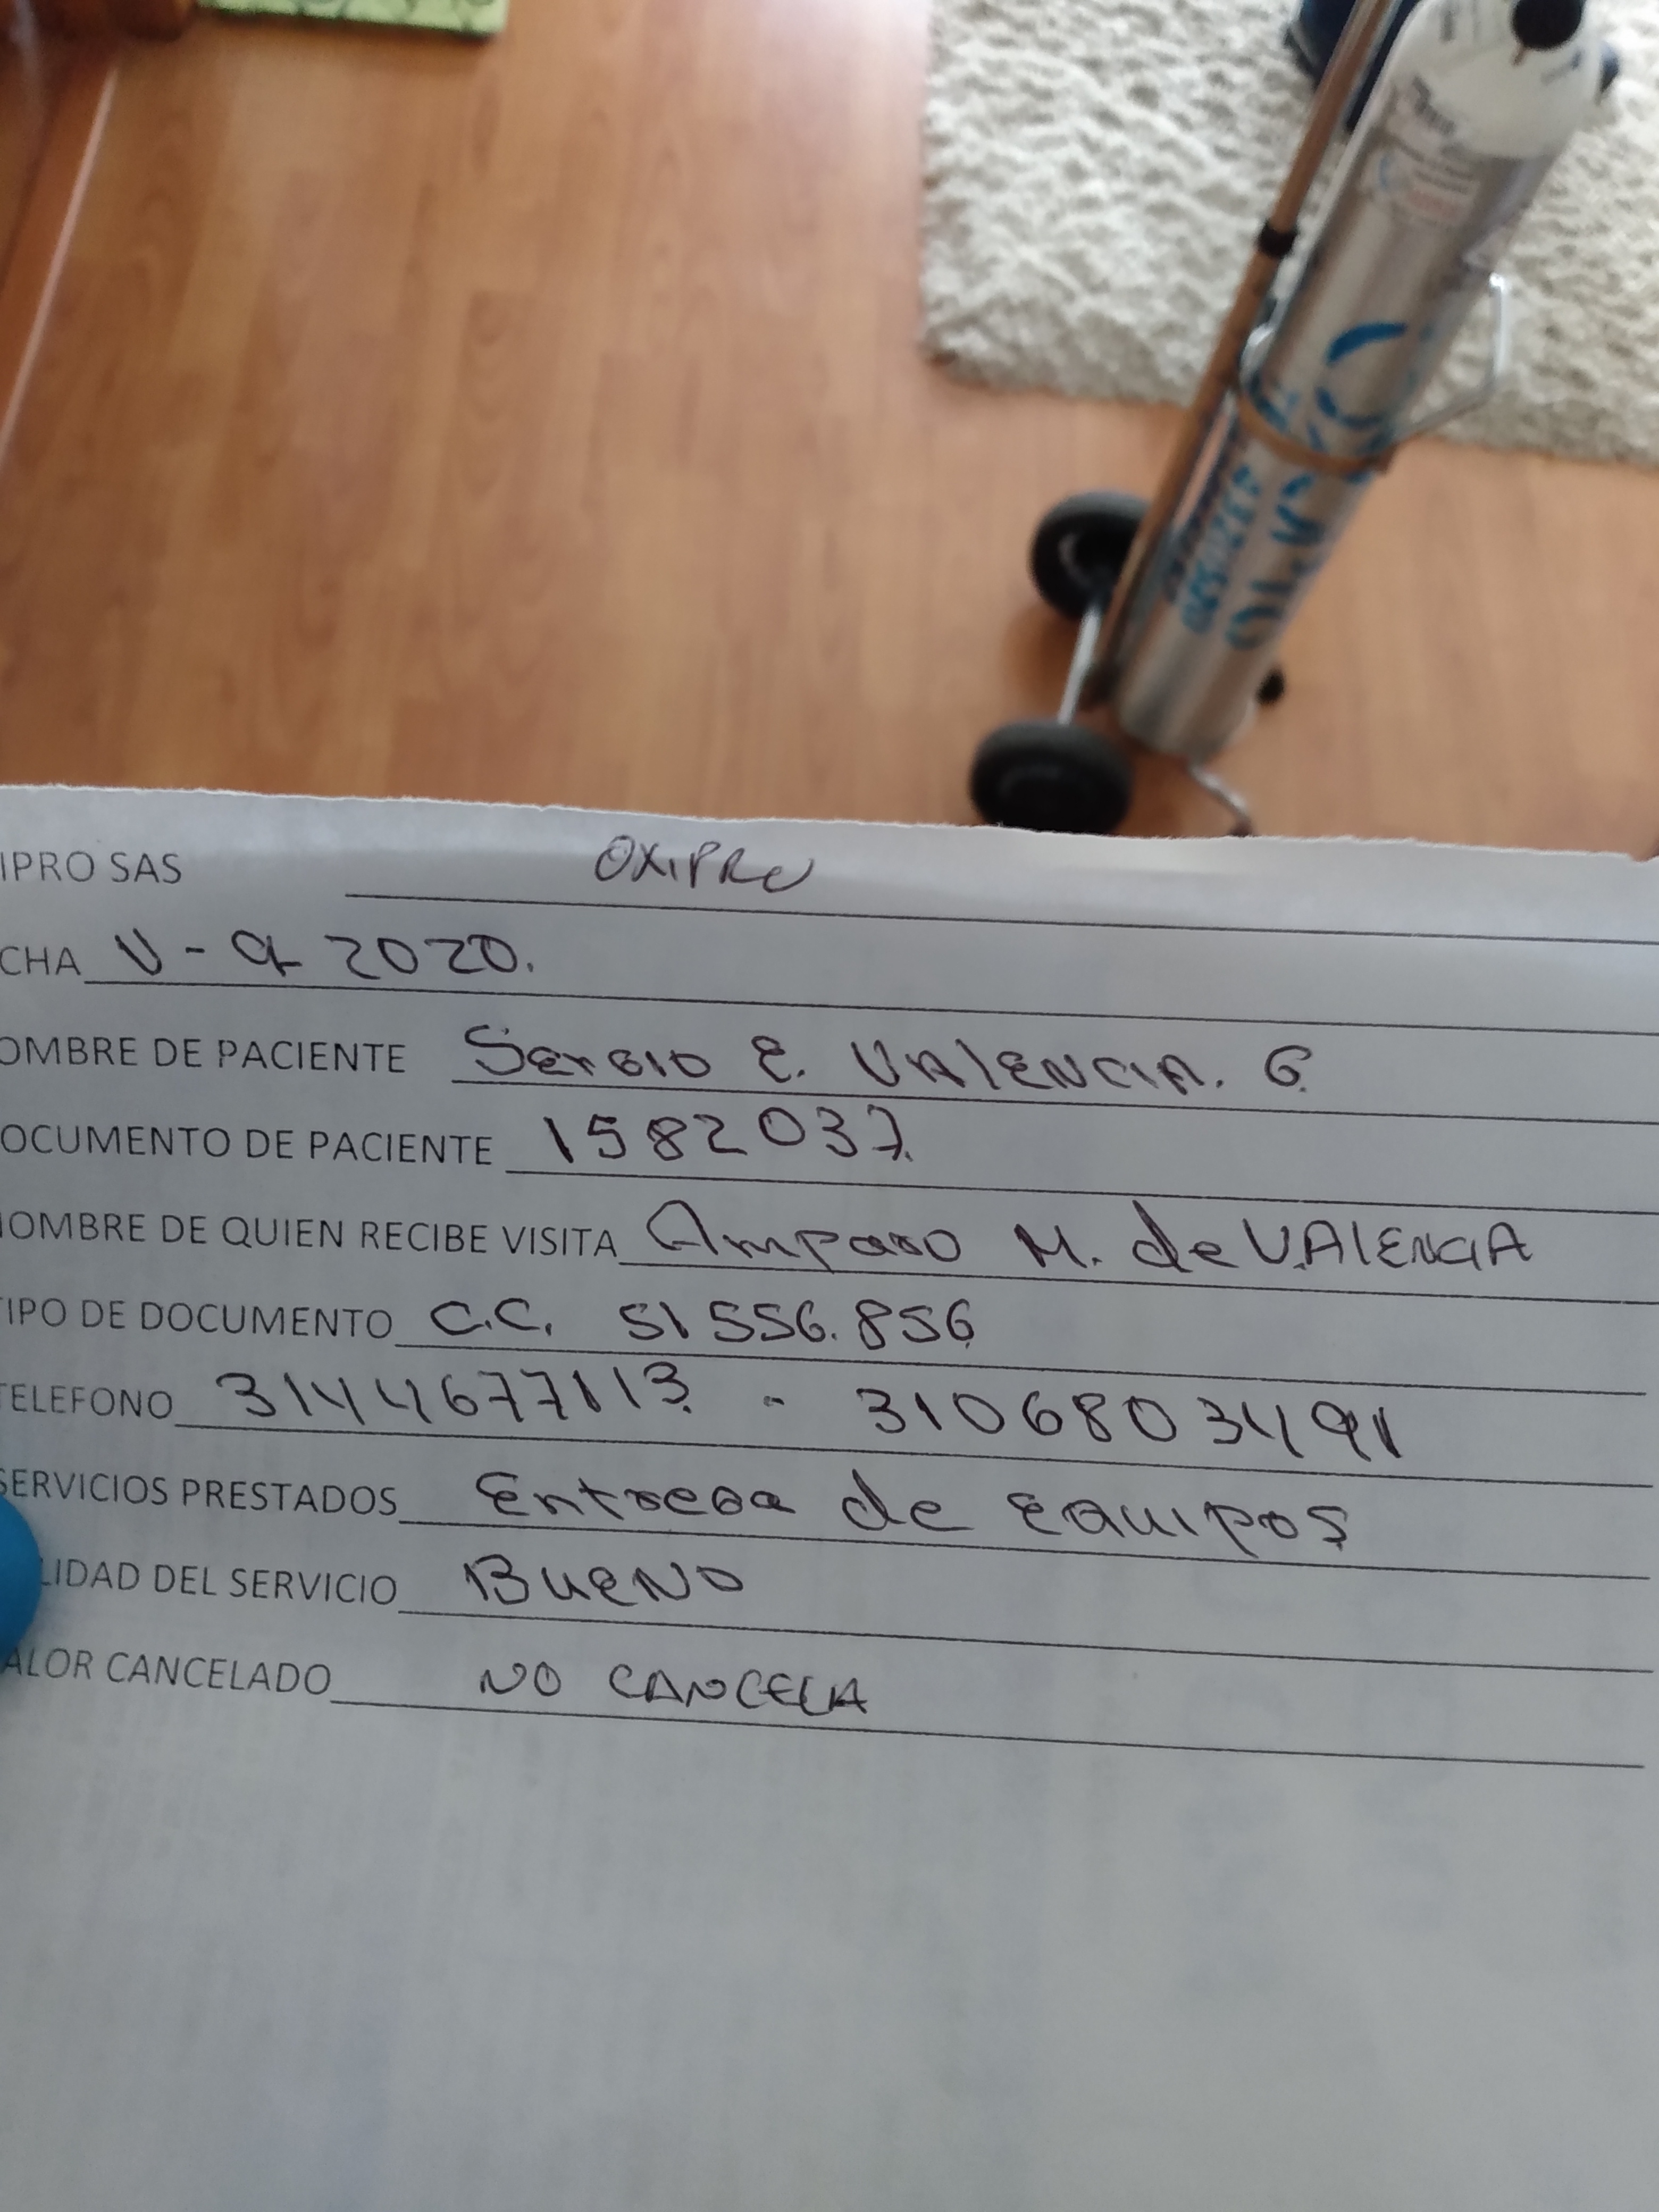 IPRO SAS OXIPRO
CHA V-9-2020.
OMBRE DE PACIENTE Sergio E. VAlENCIA. G.
OCUMENTO DE PACIENTE 1582037.
OMBRE DE QUIEN RECIBE VISITA Amparo M. de VAlENCIA
TIPO DE DOCUMENTO C.C. 51556.856
TELEFONO 3144677113. - 3106803491
SERVICIOS PRESTADOS Entrega de Equipos
LIDAD DEL SERVICIO BueNo
ALOR CANCELADO NO CANCELA